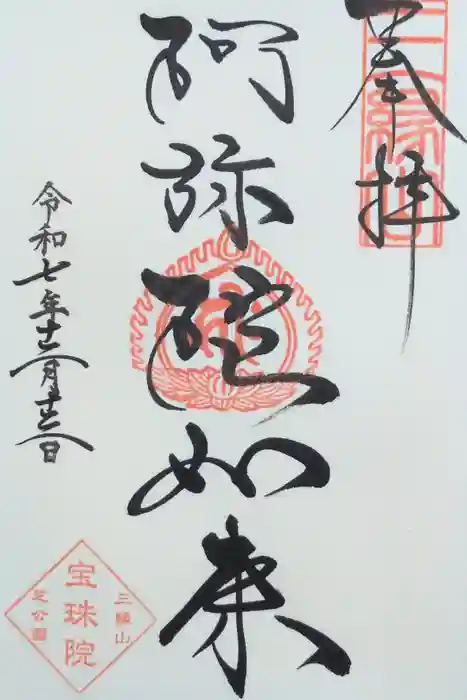 奉拝
阿弥陀如来
令和七年十二月十三日
三縁山
宝珠院
芝公園